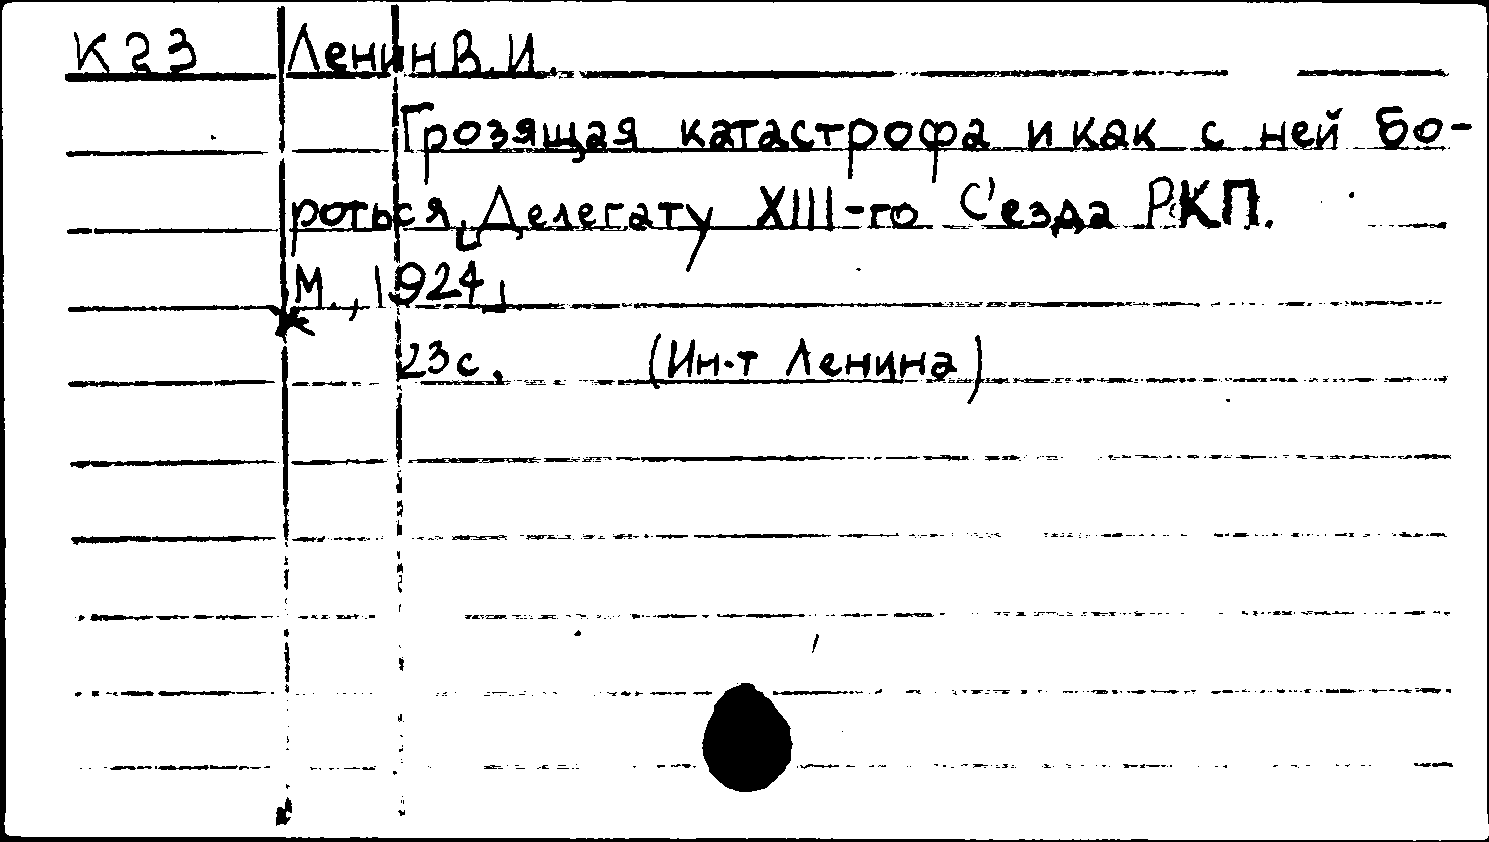 К23 Ленин В. И.
Грозящая катастрофа и как с ней бо-
роться, Делегату XIII-го С'езда РКП.
М., 1924,
23 с. (Ин-т Ленина)